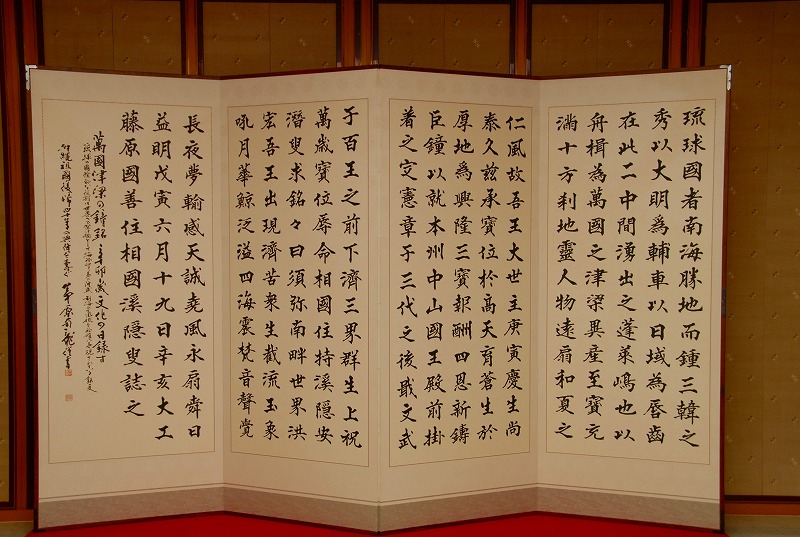 琉球國者南海勝地而鍾三韓之
秀以大明爲輔車以日域為唇齒
在此二中間湧出之蓬莱嶋也以
舟楫為萬國之津梁異産至寶充
満十方刹地靈人物遠扇和夏之
仁風故吾王大世主庚寅慶生尚
泰久茲承寶位於高天育蒼生於
厚地為興隆三寶報酬四恩新鑄
巨鐘以就本州中山國王殿前掛
著之定憲章于三代之後戢文武
于百王之前下濟三界群生上祝
萬歳寶位辱命相國住持溪隠安
潜叟求銘々曰須弥南畔世界洪
宏吾王出現濟苦衆生截流玉象
吼月華鯨泛溢四海震梵音聲覺
長夜夢輸感天誠堯風永扇舜日
益明戊寅六月十九日辛亥大工
藤原國善住相國溪隠叟誌之
萬國津梁の鐘銘 辛卯歳文化の日録す